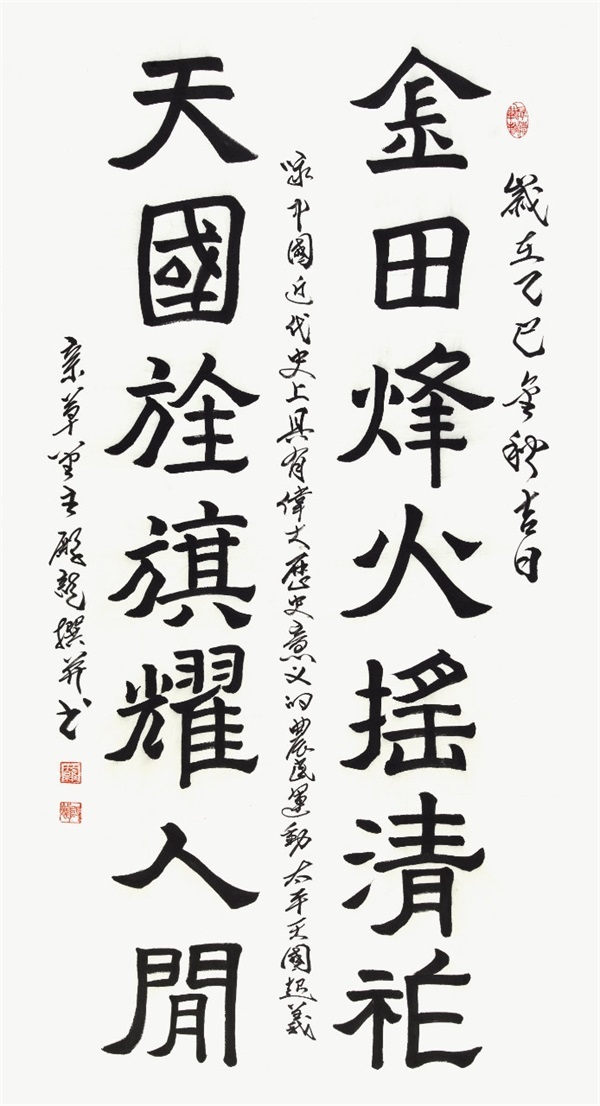 歲在乙巳金秋吉日
金田烽火搖清祚
咏中國近代史上具有偉大歷史意义的農民運動太平天國起義
天國旌旗耀人閒
草堂主龍撰并书